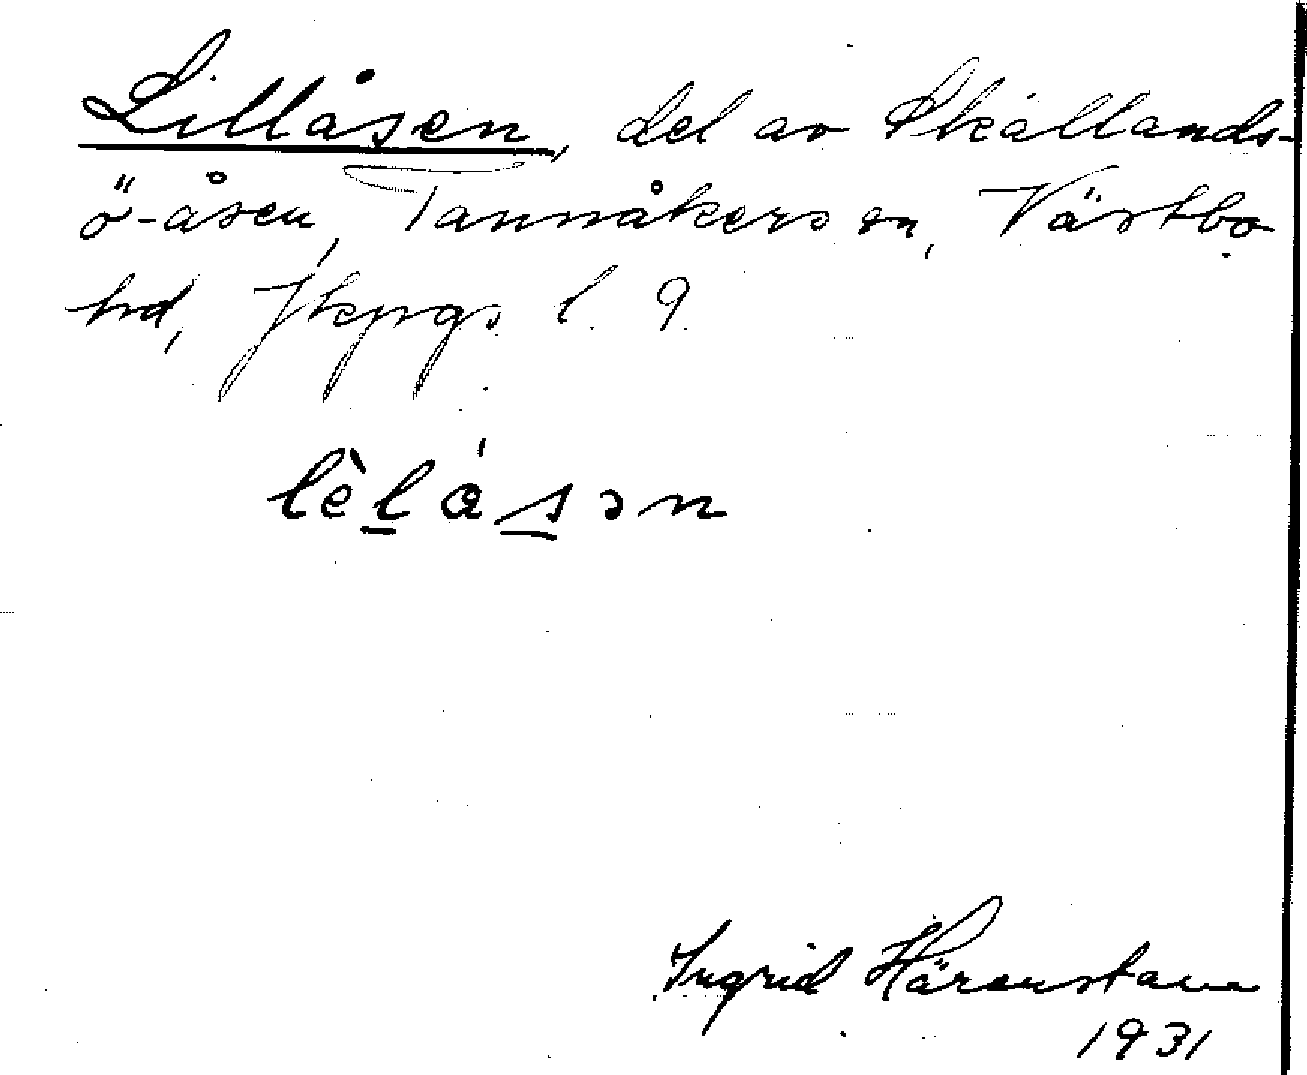 Lillåsen, del av Skållands-
ö-åsen, Tannåkers sn, Västbo
hd, Jkpgs l. 9.
lèlåsən
Ingrid Härenstam
1931